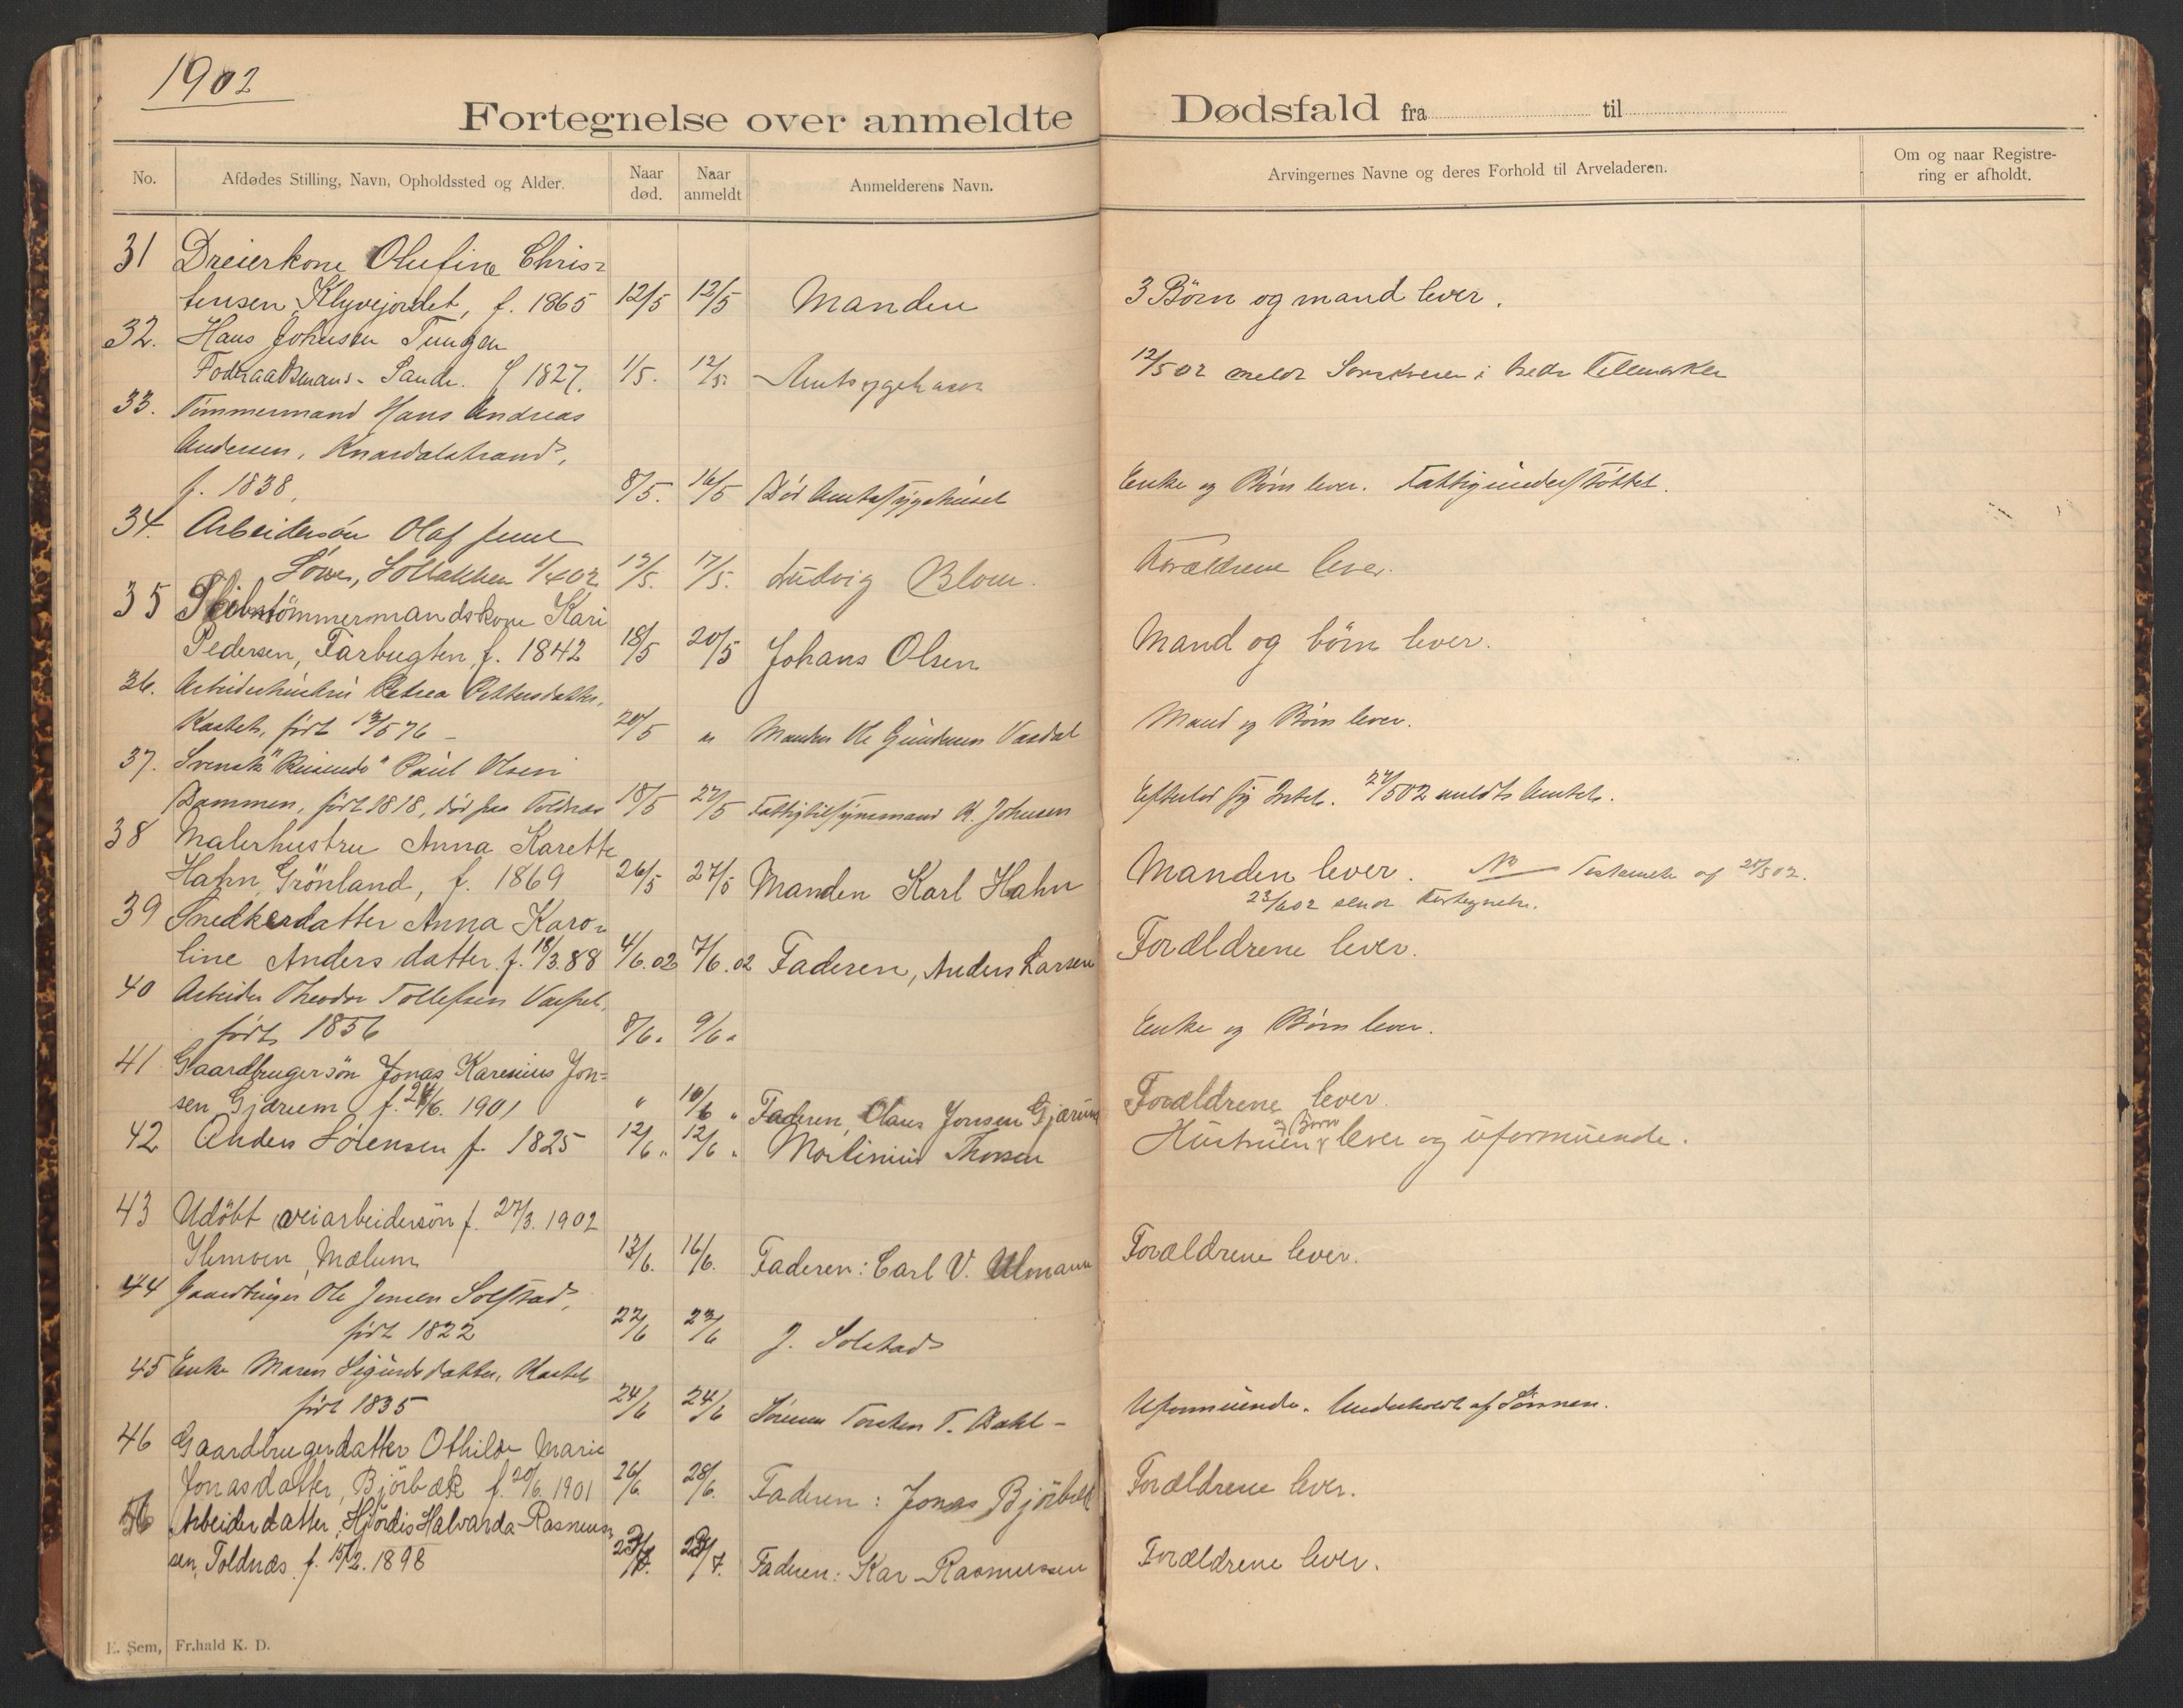 1902
Fortegnelse over anmeldte Dødsfald fra til
No.
Afdødes Stilling, Navn, Opholdssted og Alder.
Naar død.
Naar anmeldt
Anmelderens Navn.
Arvingernes Navne og deres Forhold til Arveladeren.
Om og naar Registrering er afholdt.
31 Dreierkone Olufine Chris=
tensen, Klyvejordet, f. 1865 12/5 12/5 Manden 3 Børn og mand lever.
32. Hans Johnsen Tungen
Sande. f 1827. 1/5. 12/5. Amtssygehuset 12/5 02 meldt Sorenskriveren i Nedre Telemarken
33. Tømmermand Hans Andreas
Andersen, Knardalstrand,
f. 1838. 8/5. 16/5 Amtssygehuset Enke og Børn lever. Fattigunderstøttet.
34. Arbeidersøn Olaf
1/4 02 17/5. Ludvig Blom. Forældrene lever.
35 Skibstømmermandskone Kari
Pedersen, Farbugten, f. 1842 18/5 20/5 Johans Olsen Mand og børn lever.
36. Arbeiderhustru Petrea Pettersdatter,
født 76 20/5 " Manden Ole Gundersen Vasdal Mand og Børn lever.
37. Svensk "Reisende" Paul Olsen
Dammen, født 1818, død paa Toldnæs 18/5 27/5 Fattigtilsynsmand K. Johnsen Efterlod sig Intet. 27/5 02 meldt Amtet.
38 Malerhustru Anna Karette
Hahn, Grönland, f. 1869 26/5 27/5 Manden Karl Hahn Manden lever. NB Testamente af 02.
23/6 02 sendt Fortegnelse.
39 Snedkerdatter Anna Karo=
line Andersdatter. f. 18/3.88 4/6.02 7/6.02 Faderen, Anders Larsen Forældrene lever.
40 Arbeider Theodor Tollefsen
født 1856 8/6. 9/6 " Enke og Børn lever.
41 Gaardbrugersön Jonas Karenius Jon=
sen Gjærum f. 24/6. 1901 " 10/6 " Faderen, Olaus Jonsen Gjærum Forældrene lever.
42 Anders Sörensen f. 1825 12/6 " 12/6 " Martinius Thorsen Hustruen og Børn lever og uformuende.
43 Udöbt veiarbeidersön f. 27/3. 1902
Mælum 13/6. 16/6. Faderen: Carl V. Ulmann Forældrene lever.
44 Gaardbruger Ole Jensen Solstad,
født 1822 22/6 23/6 J. Solstad
45 Enke Maren Sigurdsdatter,
født 1835 24/6 24/6 Sønnen Torsten T. Dahl - Uformuende. Underholdt af Sønnen.
46 Gaardbrugerdatter Othilde Marie
Jonasdatter, Björbæk f. 20/6. 1901 26/6 28/6. Faderen: Jonas Björbæk Forældrene lever.
Arbeiderdatter, Hjördis Halvarda Rasmus=
sen, Toldnæs. f. 15/2. 1898 Faderen: Kar Rasmussen Forældrene lever.
E. Sem, Fr.hald K. D.